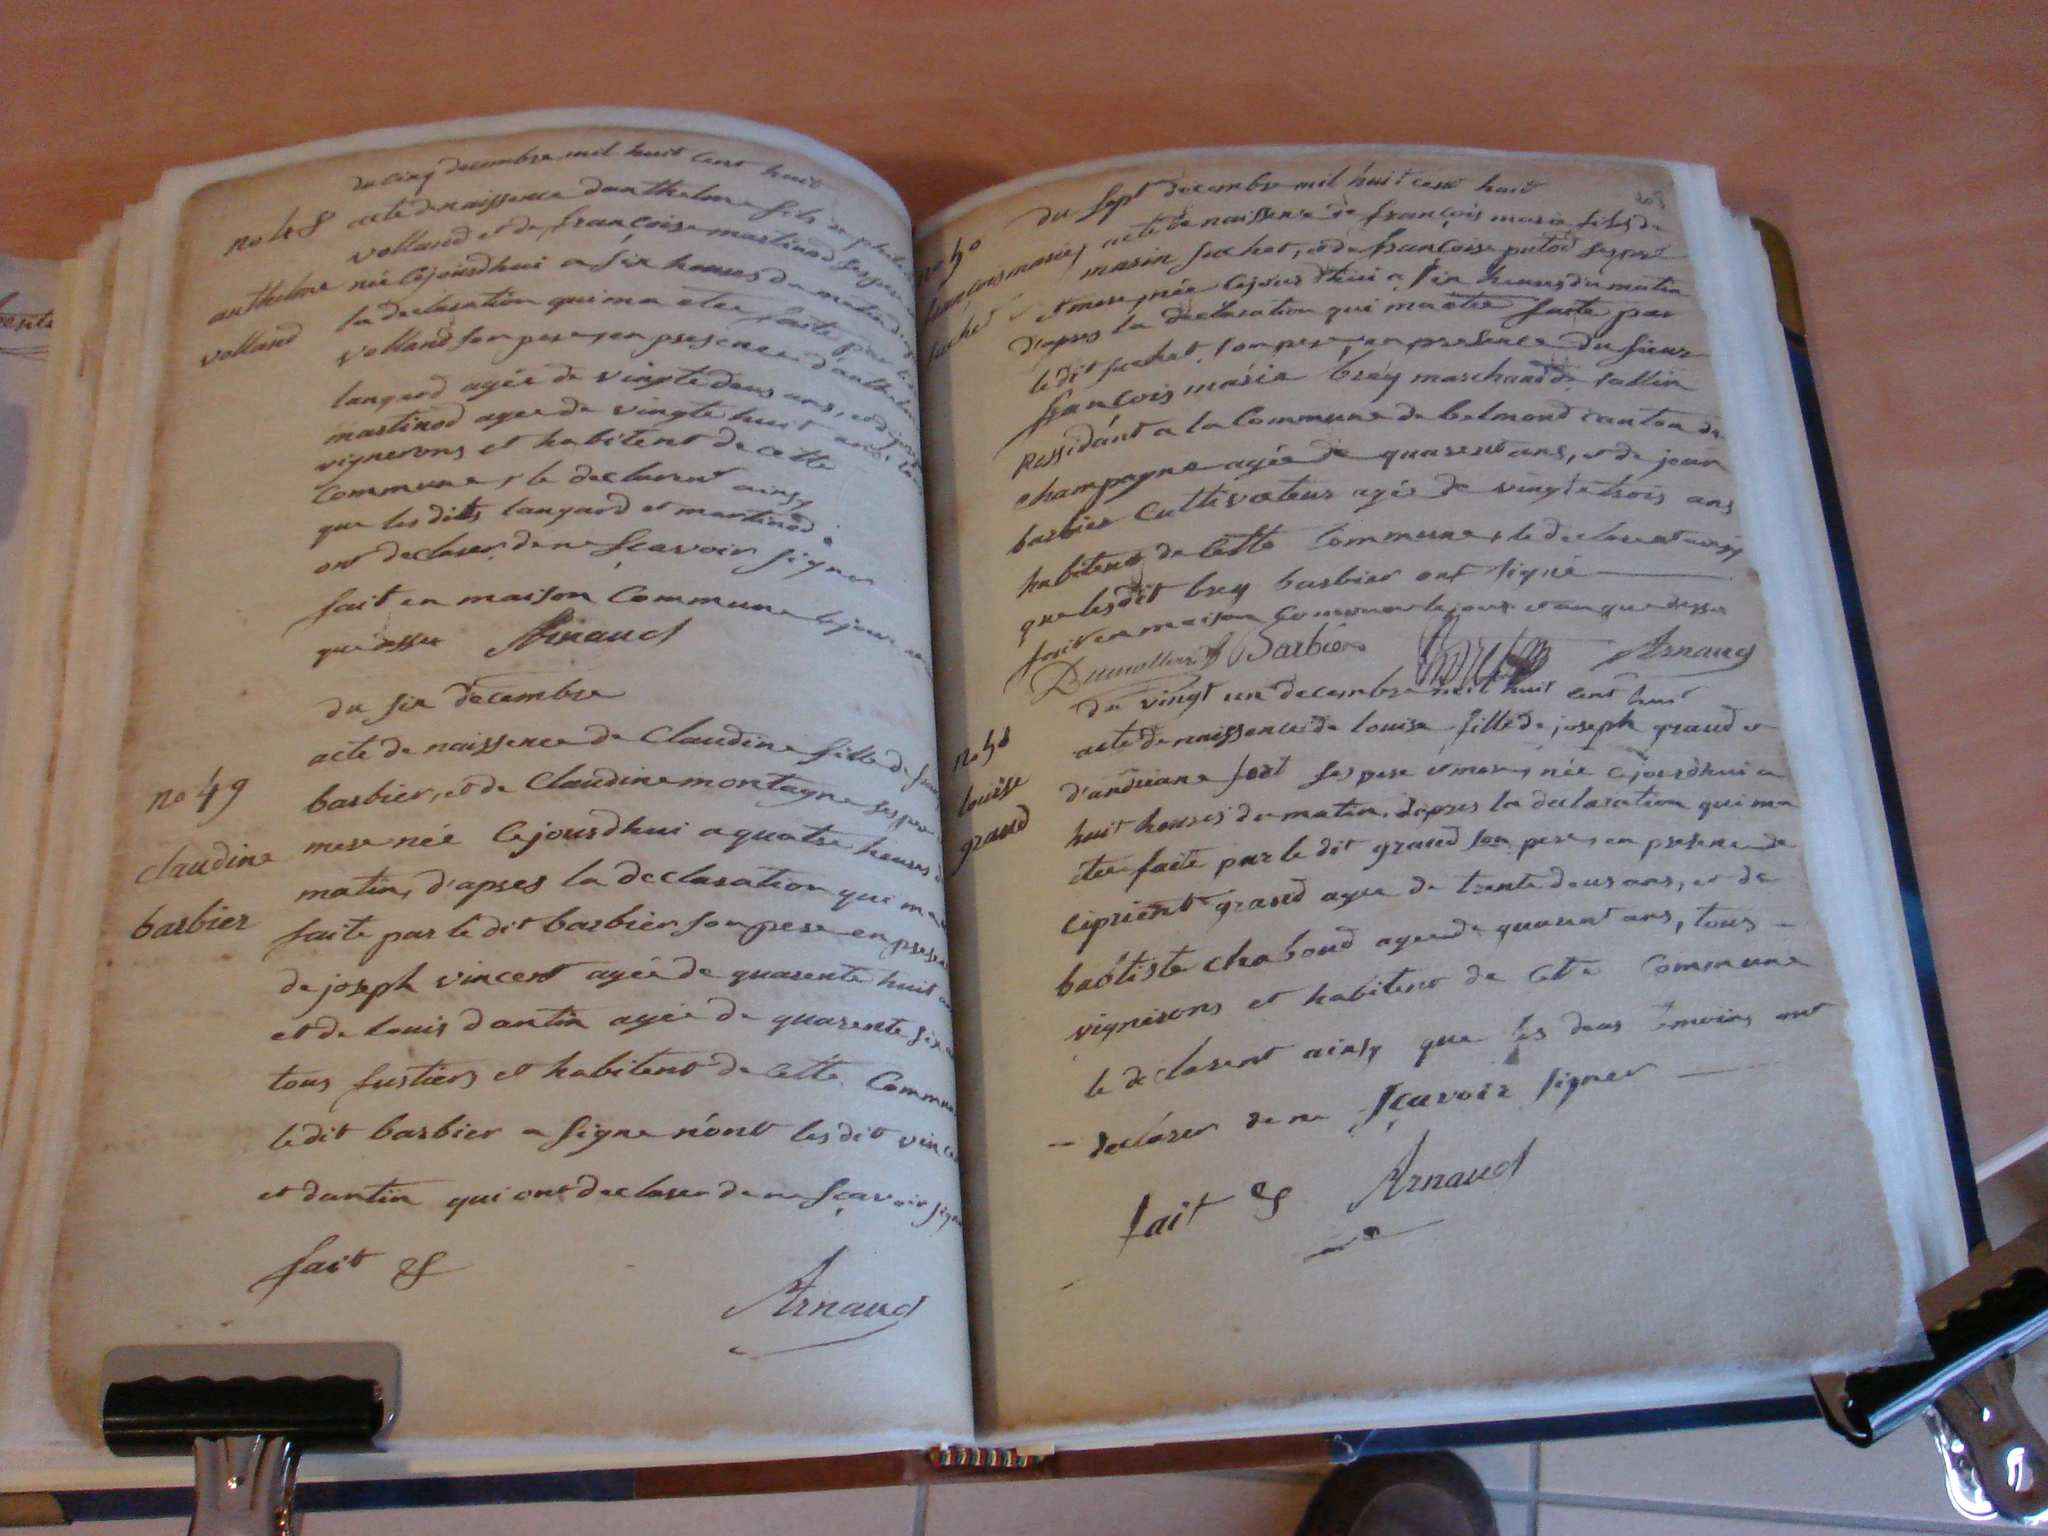 du cinq decembre mil huit cent huit
no 48
acte de naissence d'anthelme fils de
volland et de françoise martinod ses pere
anthelme
volland
née cejourdhui a six heures du matin
la declaration qui ma etee faite par le
volland son pere, en presence d'anthelme
langard agée de vingte deus ans, et de
martinod agee de vingte huit ans,
vignerons et habitent de cette
commune, le declarent ainsy
que les dits langard et martinod
ont declarer de ne sçavoir signer
fait en maison Commune le jour
que dessus Arnaud
du six decembre
no 49
claudine
barbier
acte de naissence de Claudine fille de
barbier, et de Claudine montagne ses pere
mere née Cejourdhui a quatre heures d
matin, d'apres la declaration qui ma
faite par le dit barbier son pere en presen
de joseph vincent agée de quarente huit
et de louis dantin agée de quarente six
tous fustiers et habitent de Cette Commu
le dit barbier a signe nont les dit vince
et dantin qui ont declarer de ne sçavoir sign
fait &
Arnaud
205
du sept decembre mil huit cent huit
no 50
françois marie
suchet
acte de naissence de françois marie fils de
marin suchet, et de françoise putod ses pere
et mere, née Cejourdhui a six heures du matin
d'apres la declaration qui ma etee faite par
le dit suchet son pere, en presence du sieur
françois marie brey marchand de sallin
Ressidant a la Commune de belmond canton de
champagne agée de quarent ans, et de jean
barbier Cultivateur agée de vingte trois ans
habitent de Cette Commune, le declarent ainsy
que les dit brey barbier ont signé
fait en maison Commune le jour et an que dessus
Barbier Arnaud
du vingt un decembre mil huit cent huit
no 51
louise
grand
acte de naissence de louise fille de joseph grand et
d'andréane ses pere et mere, née cejourdhui a
huit heures du matin, d'apres la declaration qui ma
étee faite par le dit grand son pere, en presence de
Ciprient grand agee de trente deus ans, et de
baptiste chaboud agee de quarent ans, tous
vignerons et habitent de Cette Commune
le declarent ainsy que les deus temoins ont
declarer de ne sçavoir signer
fait & Arnaud